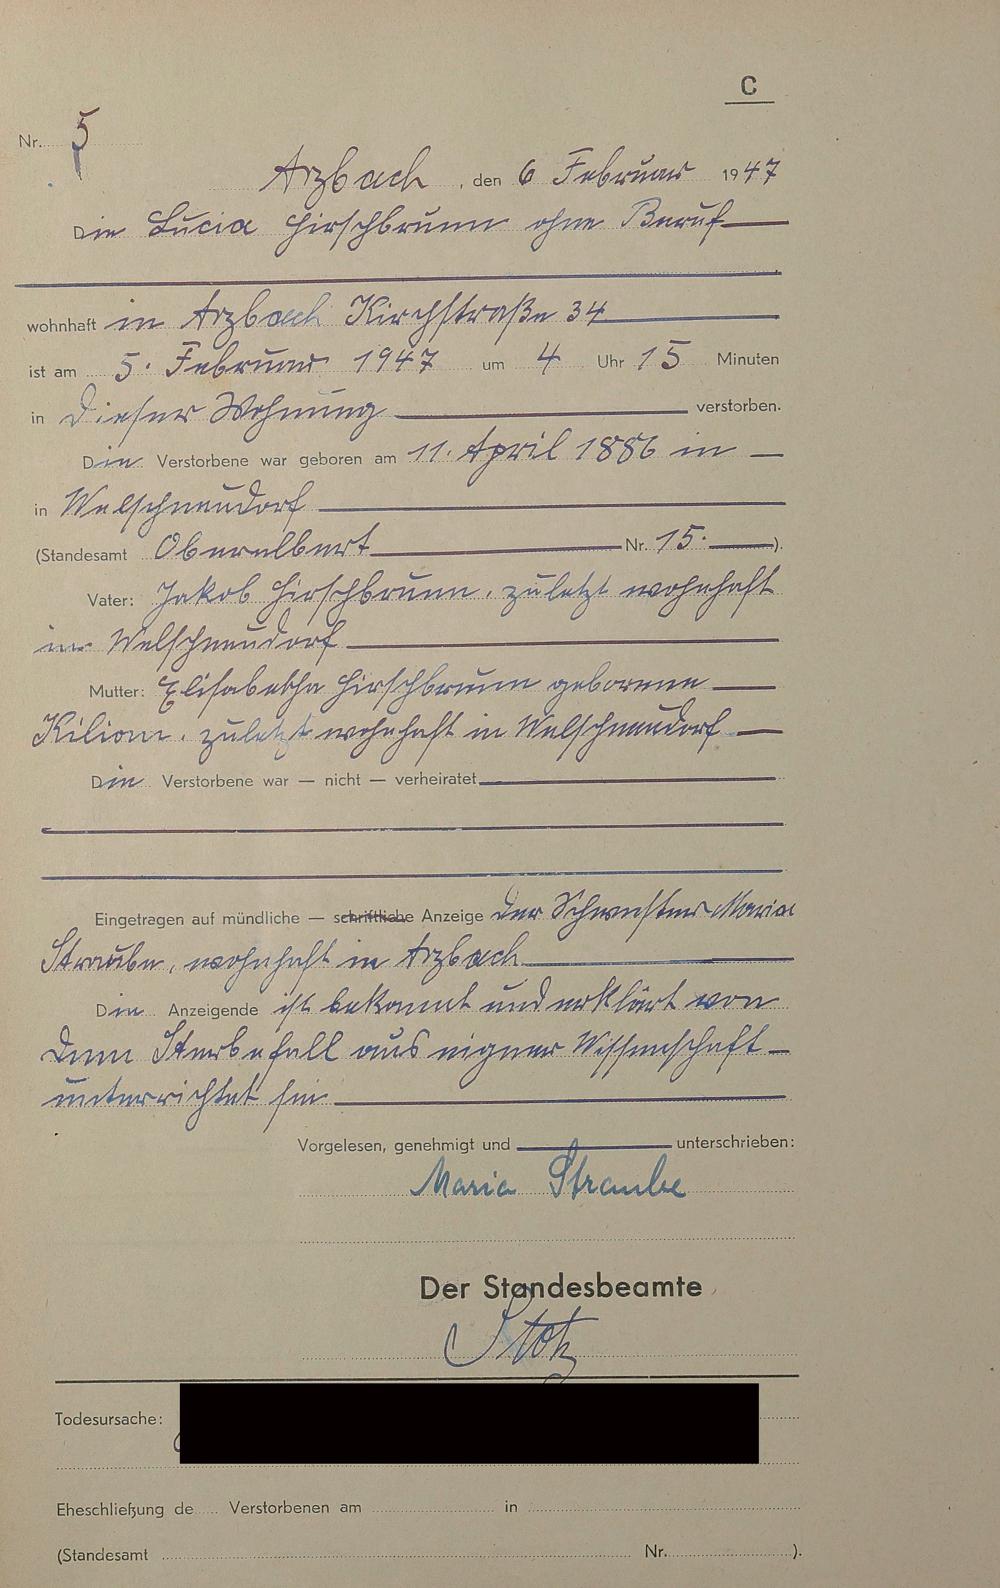 C
Nr. 5
Arzbach, den 6 Februar 1947
Die Lucia Hirschbrunn ohne Beruf
wohnhaft in Arzbach Kirchstraße 34
ist am 5. Februar 1947 um 4 Uhr 15 Minuten
in dieser Wohnung verstorben.
Die Verstorbene war geboren am 11. April 1886 in
in Welschneudorf
(Standesamt Oberelbert Nr. 15.).
Vater: Jakob Hirschbrunn, zuletzt wohnhaft
in Welschneudorf
Mutter: Elisabetha Hirschbrunn geborene
Kilian, zuletzt wohnhaft in Welschneudorf
Die Verstorbene war — nicht — verheiratet
Eingetragen auf mündliche — schriftliche Anzeige der Schwester Maria
Straube, wohnhaft in Arzbach
Die Anzeigende ist bekannt und erklärt von
dem Sterbefall aus eigner Wissenschaft
unterrichtet sei
Vorgelesen, genehmigt und unterschrieben:
Maria Straube
Der Standesbeamte
Stotz
Todesursache:
Eheschließung de Verstorbenen am in
(Standesamt Nr. ).